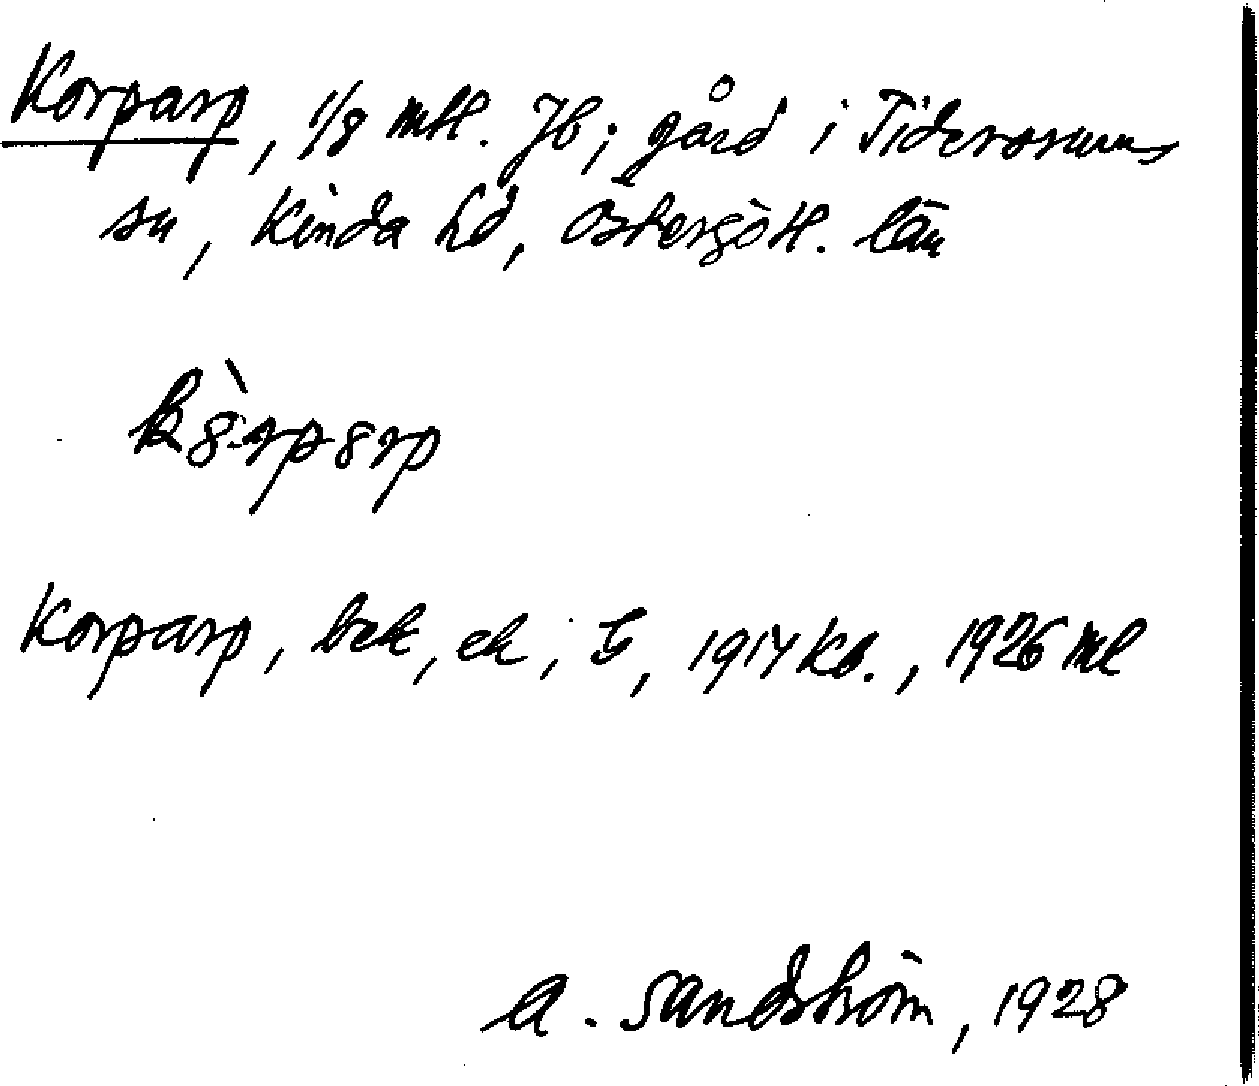 Korparp, 1/8 mtl. Jb; gård i Tidersrums
sn, Kinda hd, Östergötl. län
Korparp, bek, ek, G, 1917 kb., 1926 ml
A. Sandström, 1928